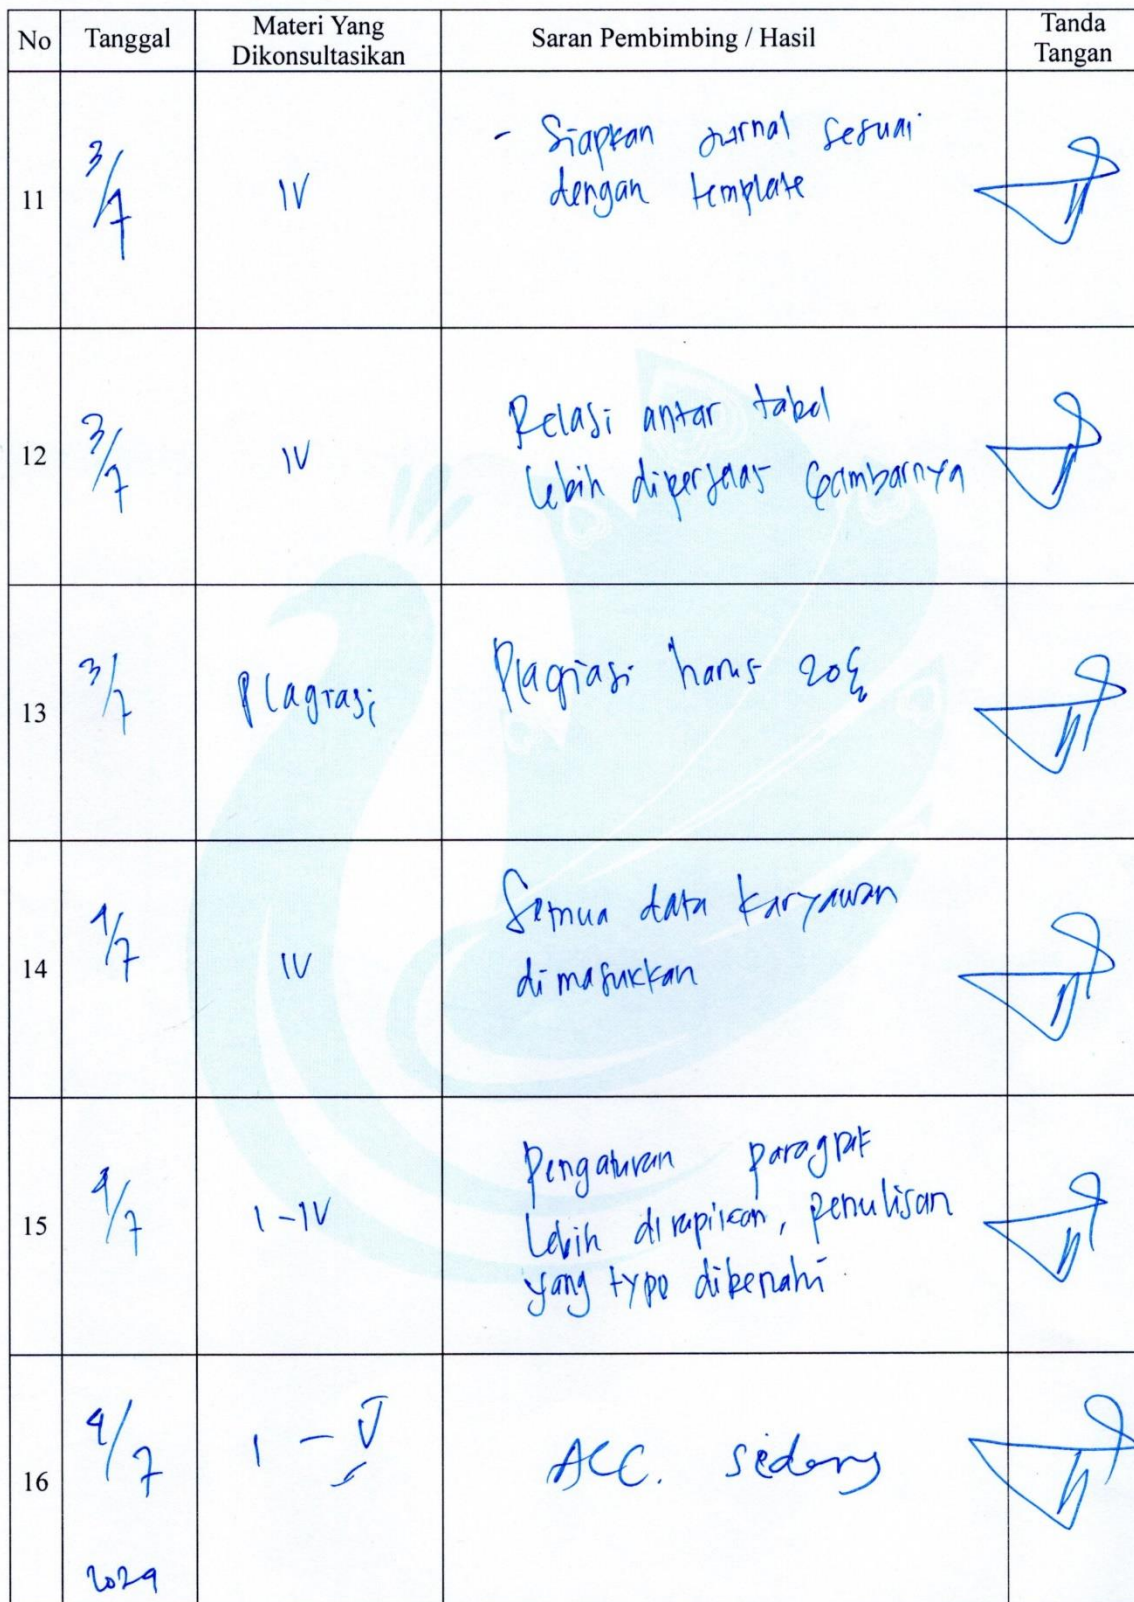 No Tanggal Materi Yang Dikonsultasikan Saran Pembimbing / Hasil Tanda Tangan
11 3/7 IV - Siapkan Jurnal sesuai
dengan template
12 3/7 IV Relasi antar tabel
lebih diperjelas Gambarnya
13 3/7 Plagiasi Plagiasi harus 20%
14 4/7 IV Semua data karyawan
dimasukkan
15 4/7 I-IV Pengaturan paragraf
lebih dirapikan, penulisan
yang typo dibenahi.
16 4/7 I - V ACC. sidang
2024